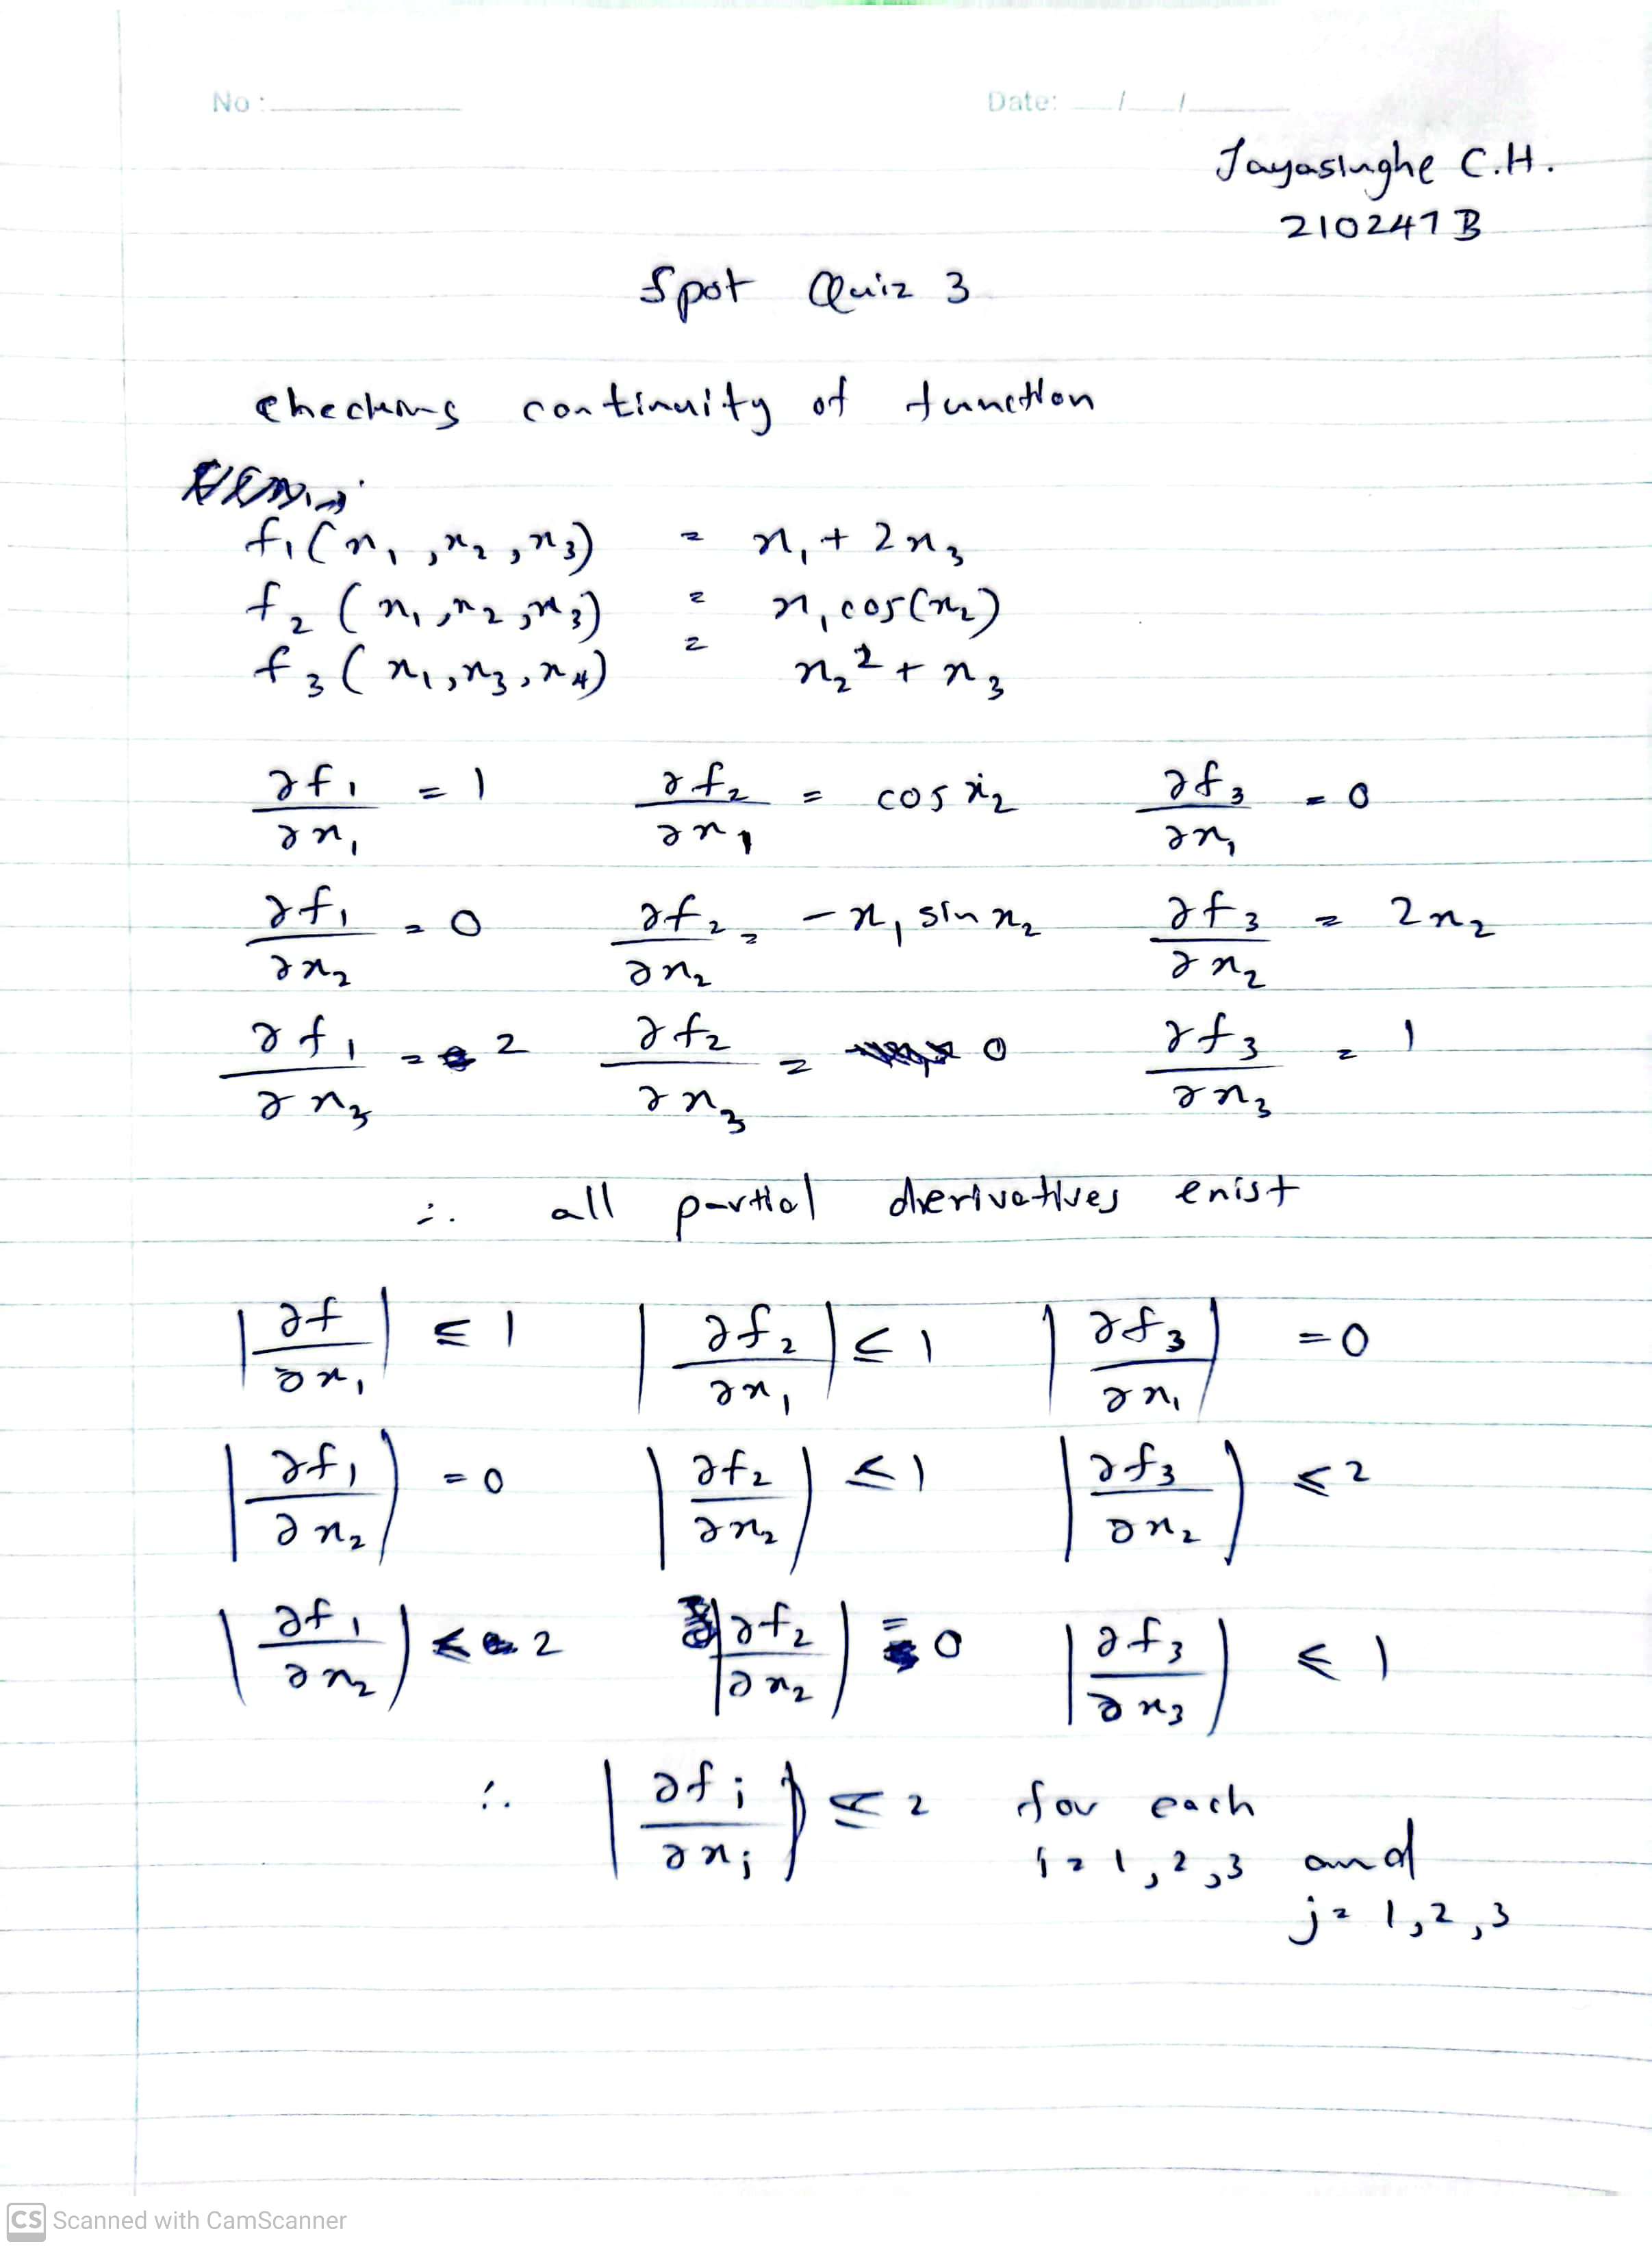 No :
Date: / /
Jayasinghe C.H.
210247B
Spot Quiz 3
checking continuity of function
f₁(x₁,x₂,x₃) = x₁ + 2x₃
f₂(x₁,x₂,x₃) = x₁cos(x₂)
f₃(x₁,x₃,x₄) = x₂² + x₃
∂f₁/∂x₁ = 1 ∂f₂/∂x₁ = cos x₂ ∂f₃/∂x₁ = 0
∂f₁/∂x₂ = 0 ∂f₂/∂x₂ = -x₁ sin x₂ ∂f₃/∂x₂ = 2x₂
∂f₁/∂x₃ = 2 ∂f₂/∂x₃ = 0 ∂f₃/∂x₃ = 1
∴ all partial derivatives exist
|∂f/∂x₁| ≤ 1 |∂f₂/∂x₁| ≤ 1 |∂f₃/∂x₁| = 0
|∂f₁/∂x₂| = 0 |∂f₂/∂x₂| ≤ 1 |∂f₃/∂x₂| ≤ 2
|∂f₁/∂x₂| ≤ 2 |∂f₂/∂x₂| = 0 |∂f₃/∂x₃| ≤ 1
∴ |∂fi/∂xj| ≤ 2 for each
i = 1,2,3 and
j = 1,2,3
CS Scanned with CamScanner